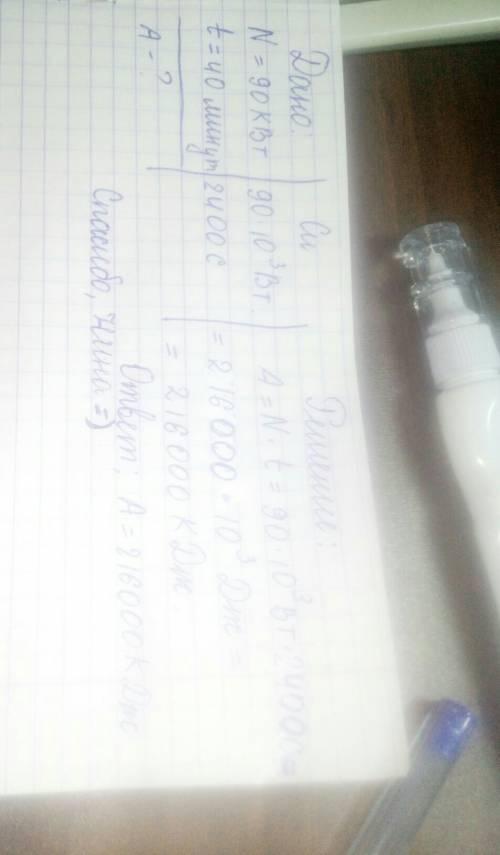 Дано:
N = 90 кВт
t = 40 минут
A - ?
Си
90 10³ Вт.
2400 с
Решение:
A = N · t = 90 · 10³ Вт · 2400 с =
= 216000 · 10³ Дж =
= 216000 кДж.
Ответ: A = 216000 кДж
Спасибо, Нина =)